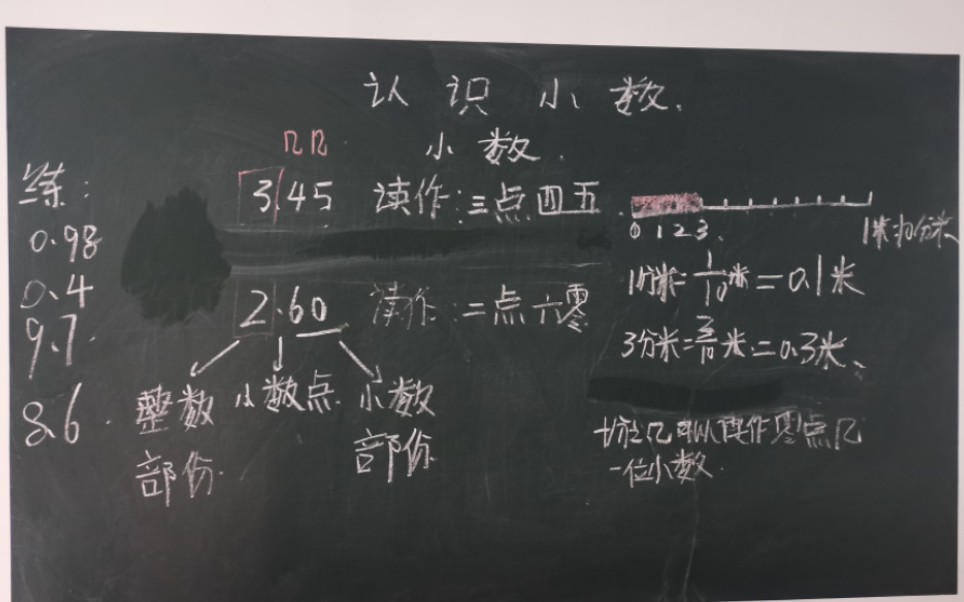 认识小数.
小数.
练:
0.98
0.4
9.7.
8.6.
几几
3.45 读作:三点四五
2.60 读作:二点六零
整数部份.
小数点.
小数部份.
0 1 2 3.
1分米=1/10米=0.1米
3分米=3/10米=0.3米、
十分之几可以读作零点几
一位小数.